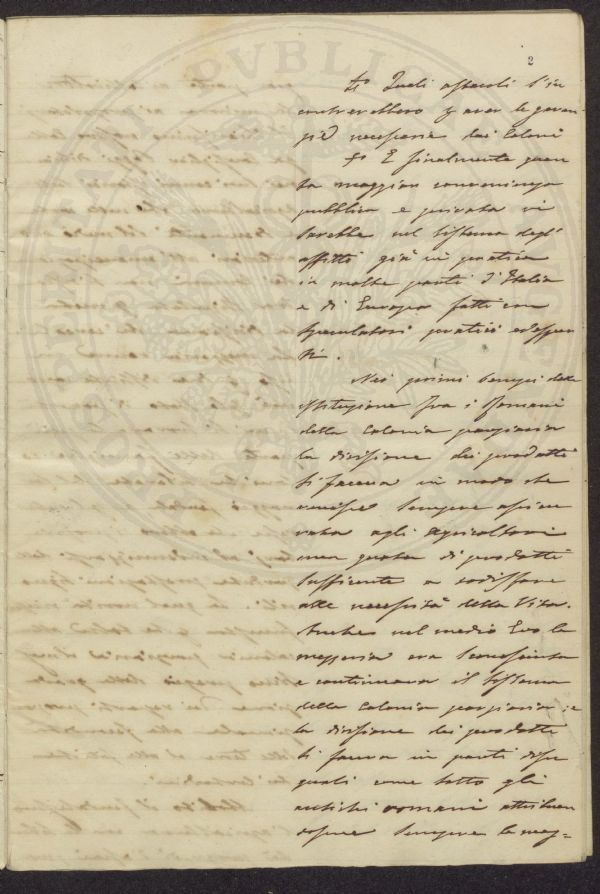 2
Quali ostacoli s'in
contrerebbero p aver le garan
zie necessarie dai Coloni
E finalmente quan
ta maggior convenienza
pubblica e privata vi
sarebbe nel sistema degli
affitti già in pratica
in molte parti d'Italia
e di Europa fatti con
speculatori pratici ed esper
ti.
Nei primi tempi della
istituzione fra i Romani
della Colonia parziaria
la divisione dei prodotti
si faceva in modo che
venisse sempre assicu
rata agli Agricoltori
una quota di prodotti
sufficente a sodisfare
alle necessità della Vita.
Anche nel medio Evo la
mezzeria era conosciuta
e continuava il sistema
della Colonia parziaria; e
la divisione dei prodotti
si faceva in parti disu
guali come sotto gli
antichi romani attribuen
dosene sempre la mag=